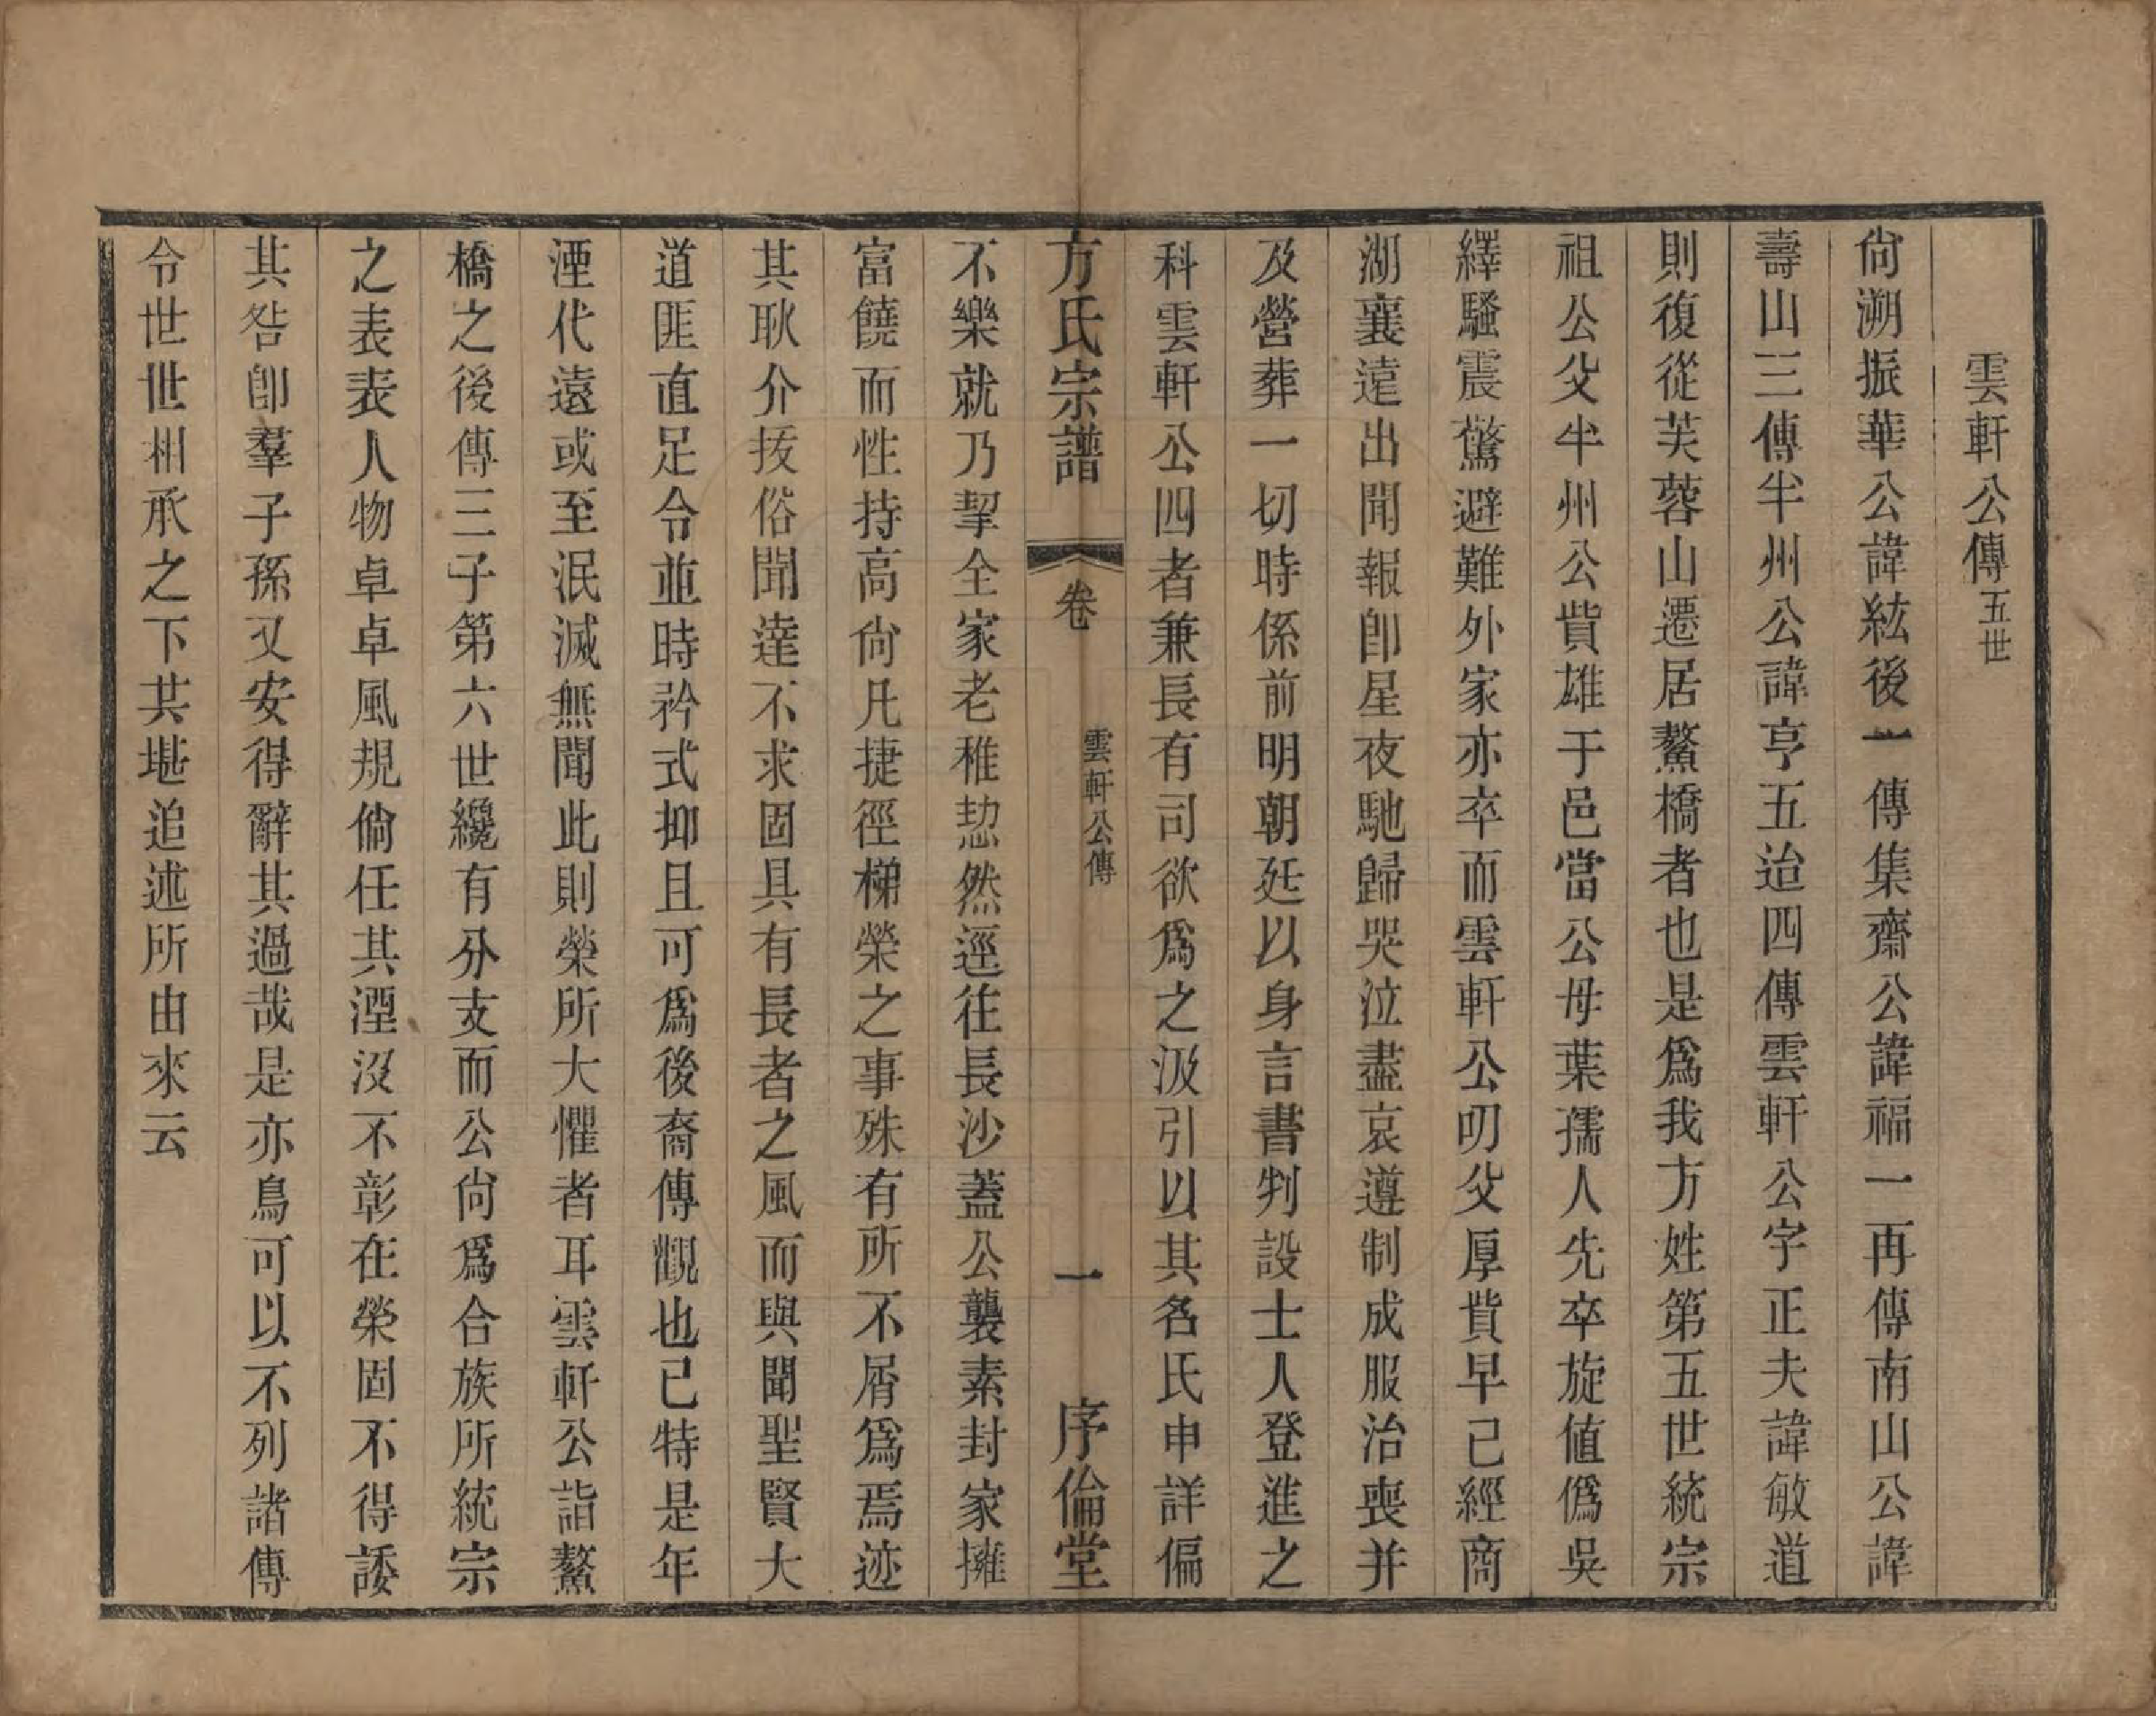 雲軒公傳五世
尙溯振華公諱紘後一傳集齋公諱福一再傳南山公諱
壽山三傳半州公諱亨五迨四傳雲軒公字正夫諱敏道
則復從芙蓉山遷居鰲橋者也是爲我方姓第五世統宗
祖公父半州公貲雄于邑當公母葉孺人先卒旋値僞吳
繹騷震驚避難外家亦卒而雲軒公叨父厚貲早已經商
湖襄遠出聞報卽星夜馳歸哭泣盡哀遵制成服治喪并
及營葬一切時係前明朝廷以身言書判設士人登進之
科雲軒公四者兼長有司欲爲之汲引以其名氏申詳偏
方氏宗譜 卷 雲軒公傳 一 序倫堂
不樂就乃挈全家老稚恝然逕往長沙蓋公襲素封家擁
富饒而性持高尙凡捷徑梯榮之事殊有所不屑爲焉迹
其耿介抜俗聞達不求固具有長者之風而與聞聖賢大
道匪直足令並時矜式抑且可爲後裔傳觀也已特是年
湮代遠或至泯滅無聞此則榮所大懼者耳雲軒公詣鰲
橋之後傳三子第六世纔有分支而公尙爲合族所統宗
之表表人物卓卓風規倘任其湮沒不彰在榮固不得諉
其咎卽羣子孫又安得辭其過哉是亦烏可以不列諸傳
令世世相承之下共堪追述所由來云